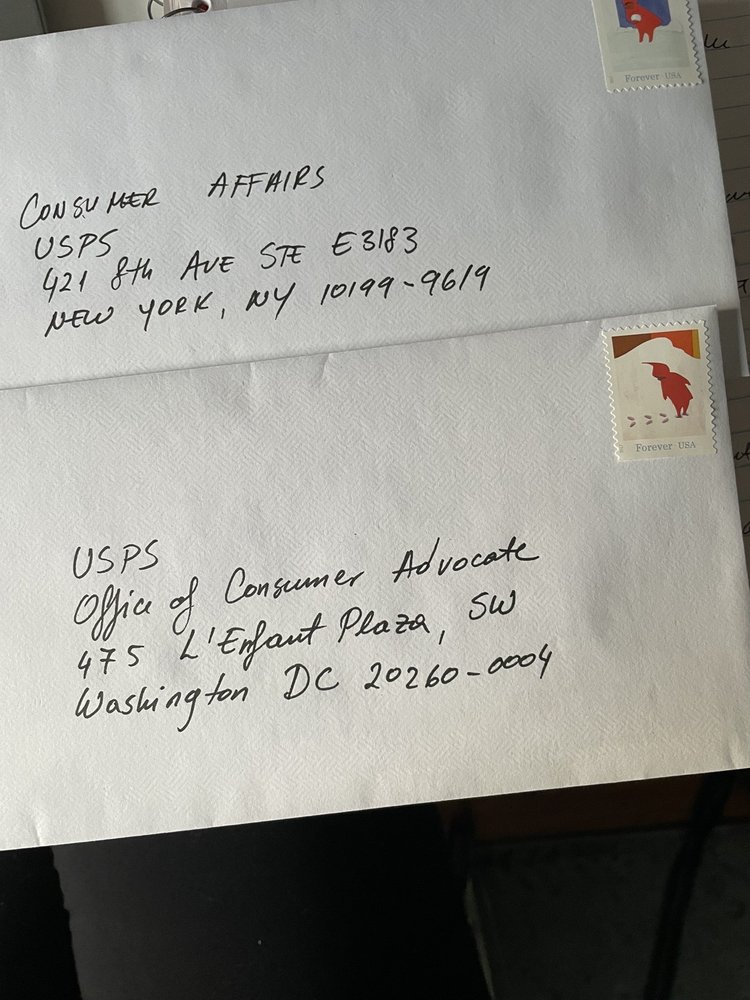 Forever USA
CONSUMER AFFAIRS
USPS
421 8th AVE STE E3183
NEW YORK, NY 10199-9619
Forever USA
USPS
Office of Consumer Advocate
475 L'Enfant Plaza, SW
Washington DC 20260-0004